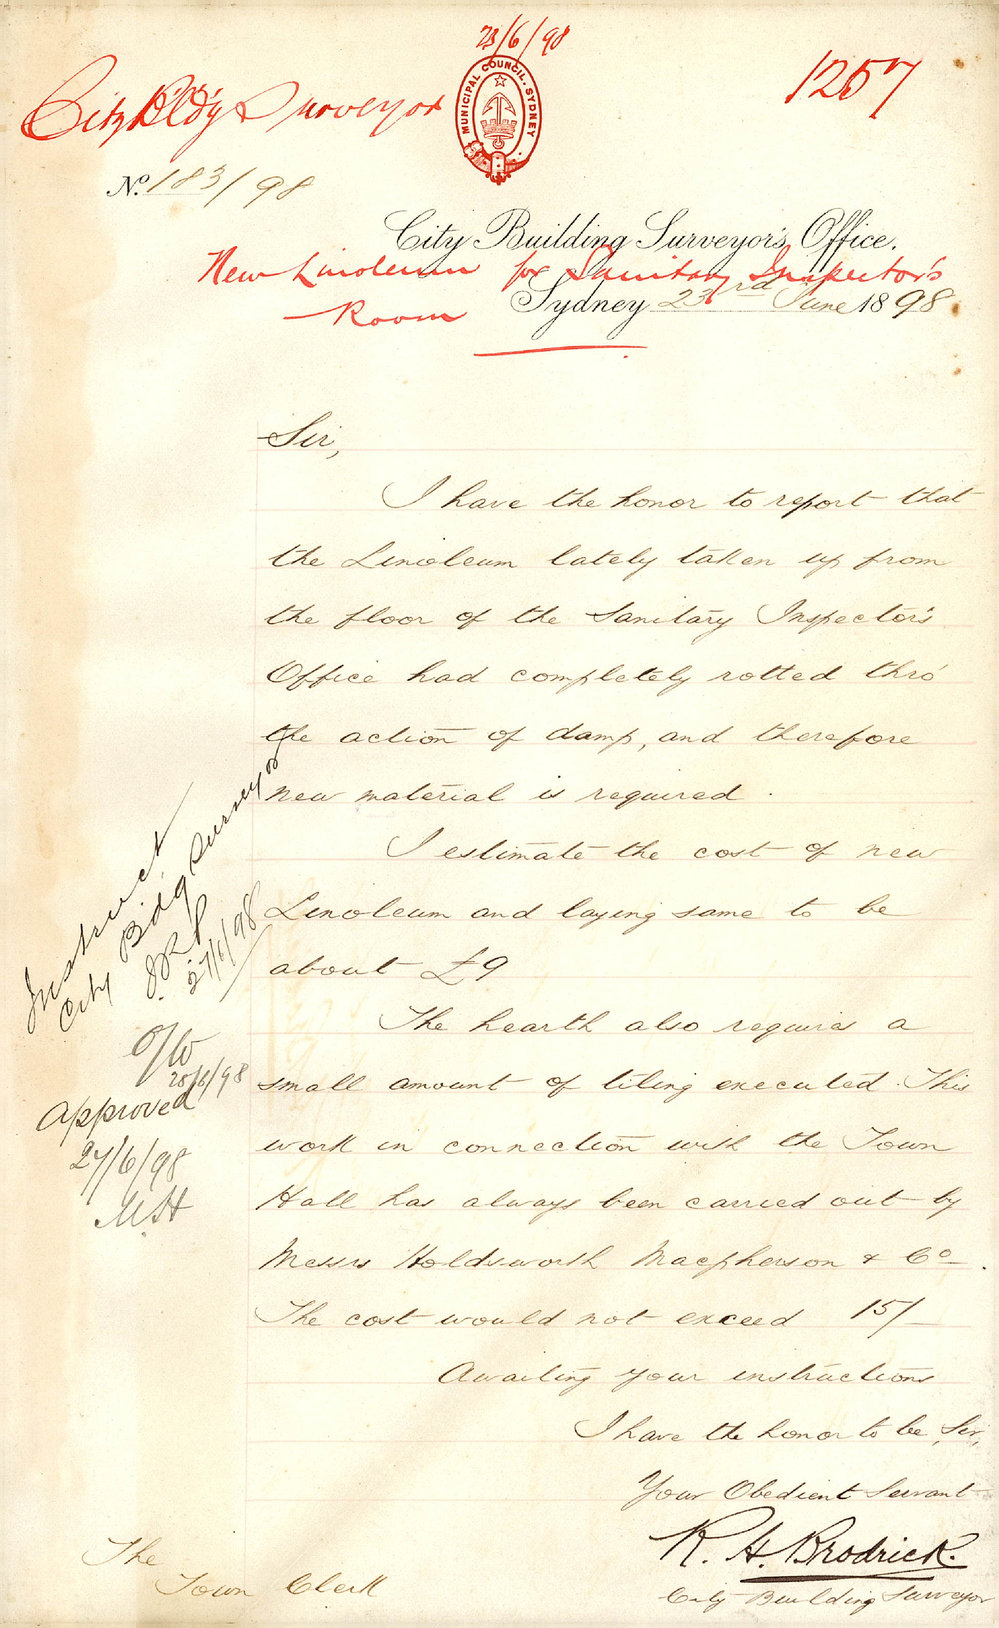 23/6/98
City Bld'g Surveyor
MUNICIPAL COUNCIL. SYDNEY
1257
No. 183/98
City Building Surveyor's Office.
New Linoleum for Sanitary Inspector's
Room
Sydney 23rd June 1898
Sir,
I have the honor to report that
the Linoleum lately taken up from
the floor of the Sanitary Inspector's
Office had completely rotted thro'
the action of damp, and therefore
new material is required.
I estimate the cost of new
Linoleum and laying same to be
about £9
The hearth also requires a
small amount of tiling executed. This
work in connection with the Town
Hall has always been carried out by
Messrs Holdsworth Macpherson & Co.
The cost would not exceed 15/-
Awaiting your instructions
I have the honor to be, Sir,
Your Obedient Servant
R. H. Brodrick.
City Building Surveyor
The
Town Clerk
Instruct
City Bldg Surveyor
27/6/98
28/6/98
Approved
27/6/98